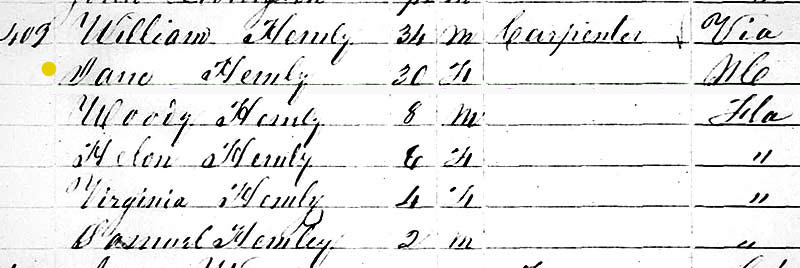 409 William Hemly 34 m Carpenter Via
Jane Hemly 30 F NC
Woody Hemly 8 m Fla
Helen Hemly 6 F "
Virginia Hemly 4 F "
Samuel Hemley 2 m "